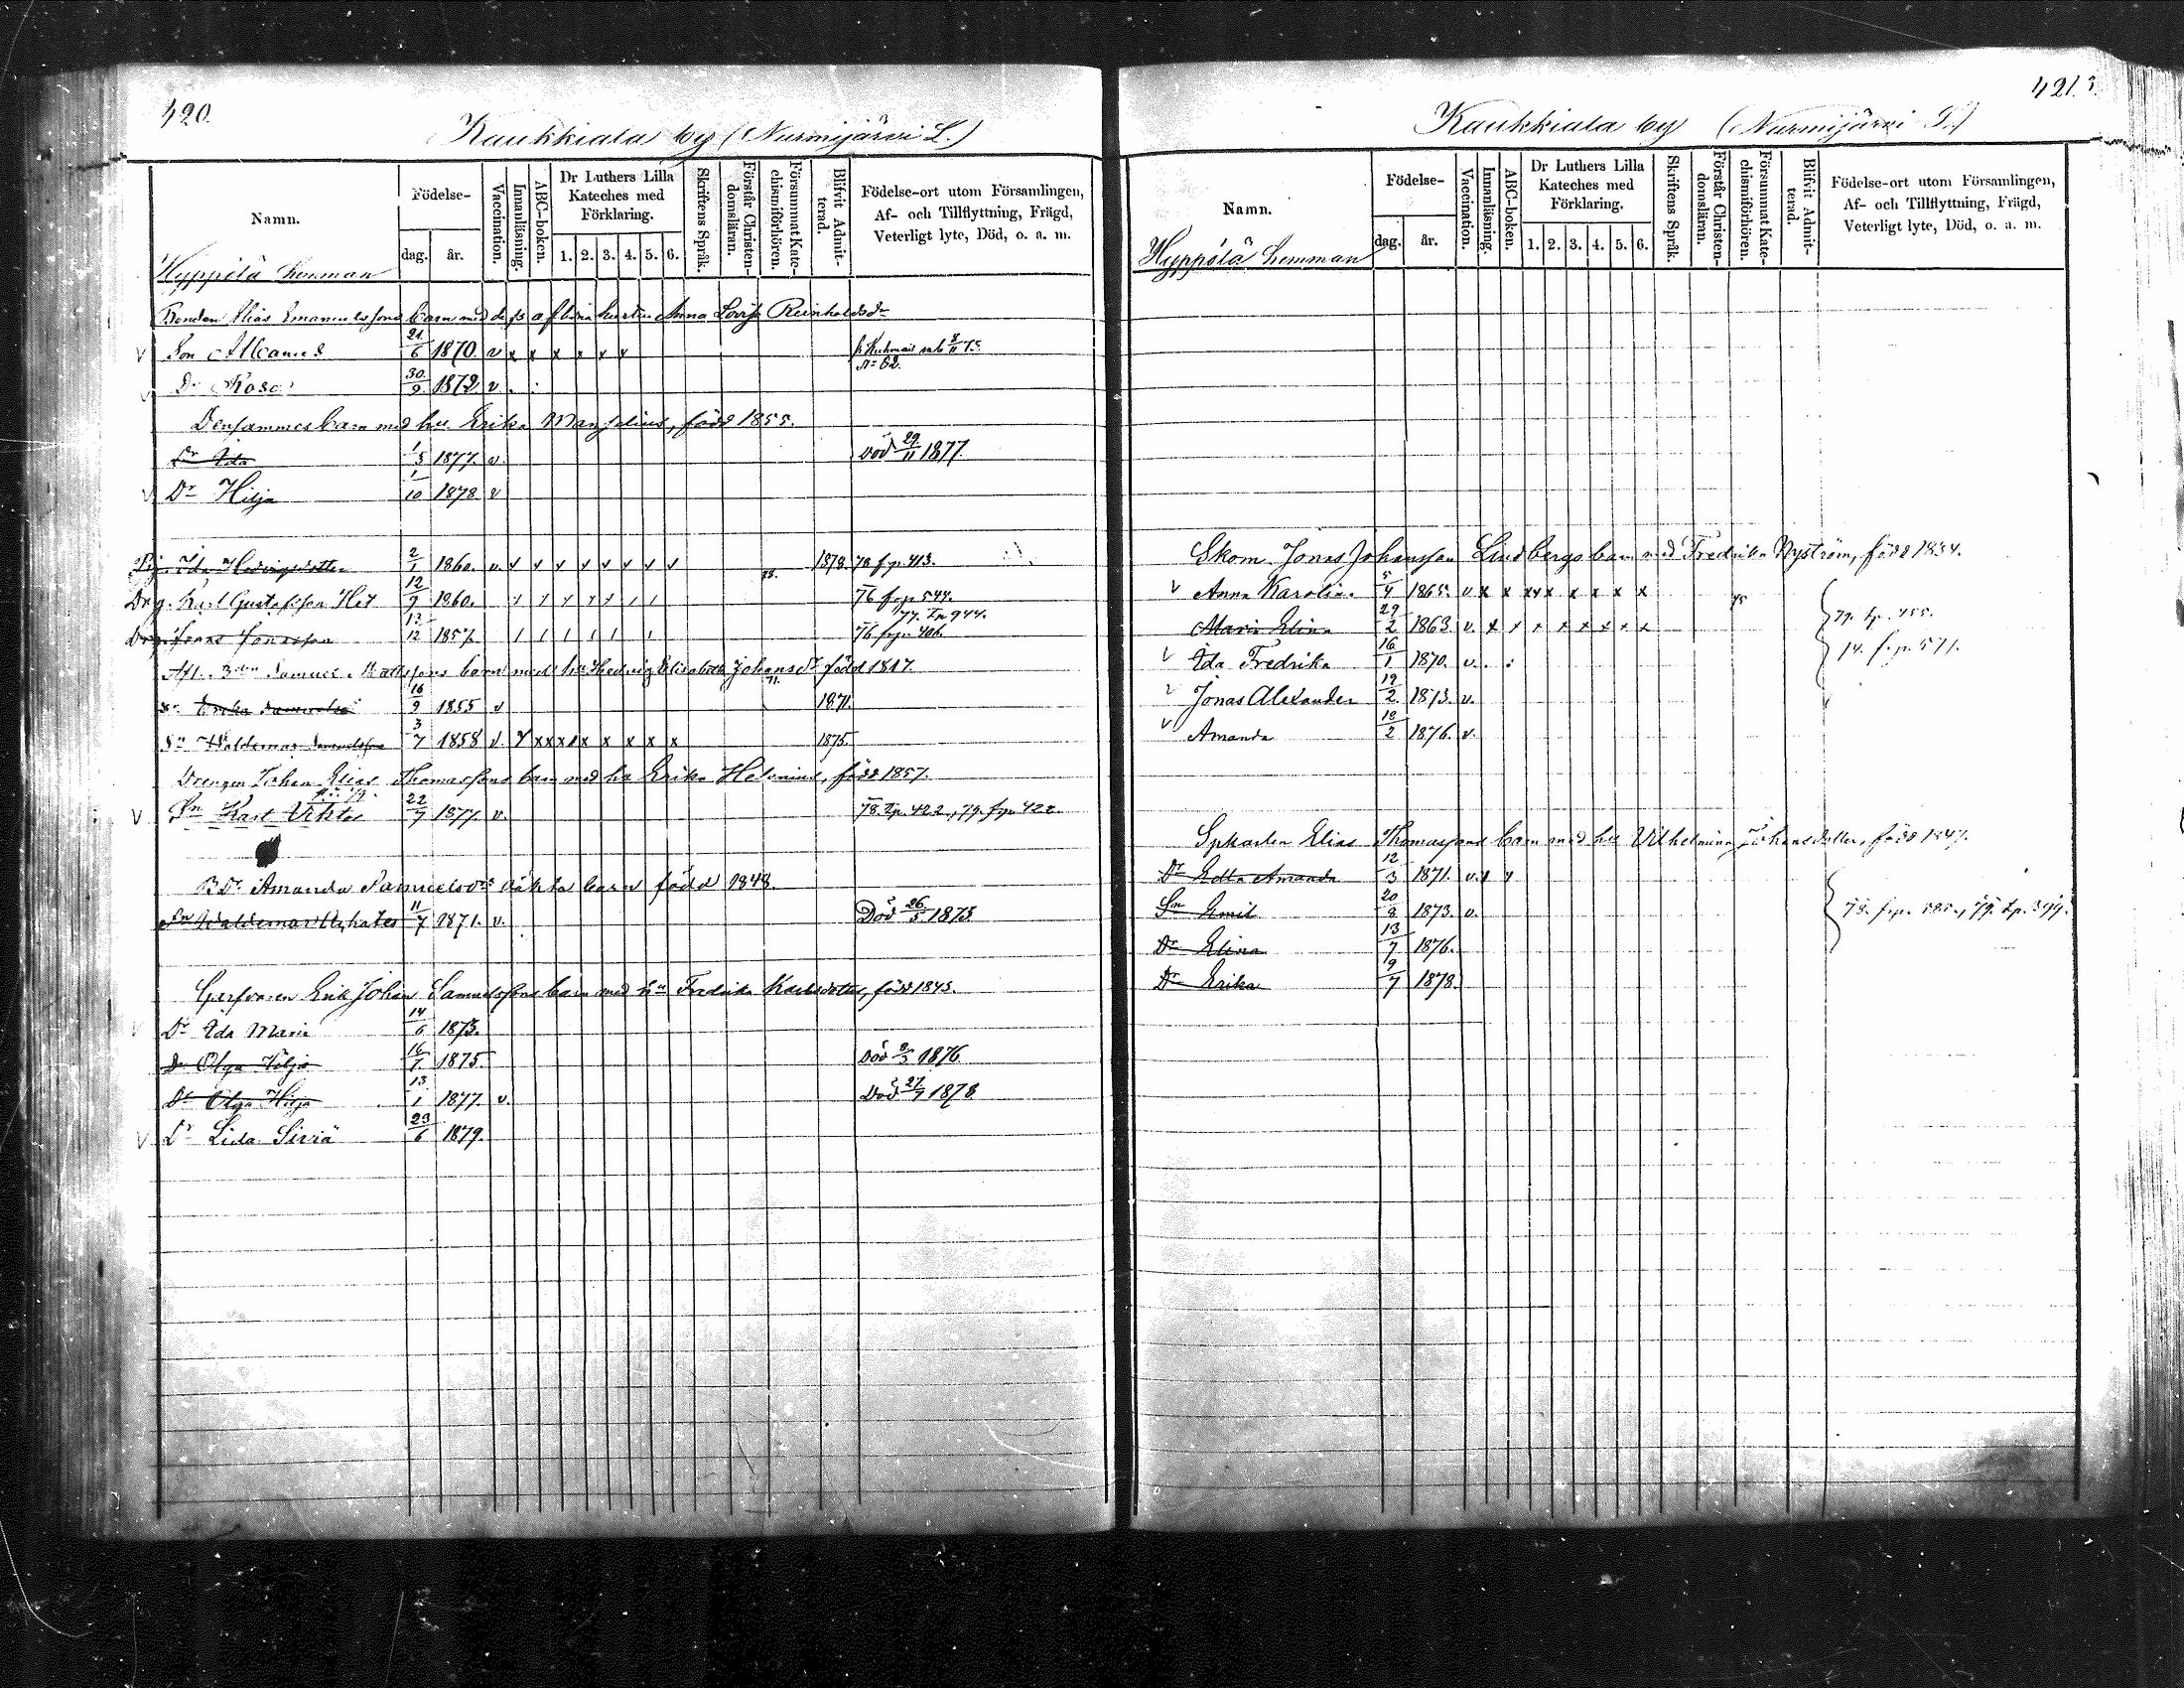 420.
Kaukkiala by (Nurmijärvi L.)
Namn.
Födelse-
dag.
år.
Vaccination.
Innanläsning.
ABC-boken.
Dr Luthers Lilla Kateches med Förklaring.
1. 2. 3. 4. 5. 6.
Skriftens Språk.
Förstår Christen-domsläran.
Försummat Kate-chismiförhören.
Blifvit Admit-terad.
Födelse-ort utom Församlingen, Af- och Tillflyttning, Frägd, Veterligt lyte, Död, o. a. m.
Hyppölä hemman
Bonden Elias Emanuelssons barn med dess aflidna hustru Anna Lovisa Reinholdsdr
v Son Albanus 21/6 1870. v x x x x x x
v Dr Rosa 30/9 1872 v
Densammes barn med hu Erika Mangelius, född 1855.
Dr Ida 1/5 1877. v död 29/11 1877
v Dr Hilja 1/10 1878 v
Pig. Ida Hedvigsdotter 2/1 1860. v. v v v v v v v v 1878. 78 fr p. 413.
Drg. Karl Gustafsson 12/9 1860. 76 fr p. 544.
77. t.p. 944.
Drg. Jonas Jonasson 13/12 1857. 76 fr p. 406.
Afl. Samuel Mattssons barn med hu Hedvig Elisabeth Johansdr född 1817.
Dr Erika Samuelsdr 16/9 1855 v 1871.
Sn Waldemar Samuelsson 3/7 1858 v. 1875.
Drengen Johan Elias Thomassons barn med hu Erika Helenius, född 1857.
v Sn Karl Viktor 22/7 1877. v. 78 t.p. 422., 79. fr p. 422.
B.Dr. Amanda Samuelsdrs oäkta barn född 1848.
Sn Waldemar 11/7 1871. v. Död 26/5 1873
Erik Johan Samuelssons barn med hu Fredrika Karlsdotter, född 1843.
v Dr Ida Maria 14/6 1873.
Dr Olga Hilja 16/7 1875. död 8/3 1876
Dr Olga Hilja 13/1 1877. v. Död 27/7 1878
v Dr Lida Siviä 23/6 1879.
421.
Kaukkiala by (Nurmijärvi L.)
Namn.
Födelse-
dag.
år.
Vaccination.
Innanläsning.
ABC-boken.
Dr Luthers Lilla Kateches med Förklaring.
1. 2. 3. 4. 5. 6.
Skriftens Språk.
Förstår Christen-domsläran.
Försummat Kate-chismiförhören.
Blifvit Admit-terad.
Födelse-ort utom Församlingen, Af- och Tillflyttning, Frägd, Veterligt lyte, Död, o. a. m.
Hyppölä hemman
Skom. Jonas Johansson Lindbergs barn med Fredrika Nyström, född 1834.
v Anna Karolin. 5/4 1865. v x x x x x x x x 75
Maria Elina 29/2 1863. v. x x x x x x x x 79. t.p. 455.
v Ida Fredrika 16/1 1870. v. 74. fr p. 571.
v Jonas Alexander 19/2 1873. v.
v Amanda 18/2 1876. v.
Spkarlen Elias Thomassons barn med hu Vilhelmina Johansdotter, född 1847.
Dr Edla Amanda 12/3 1871. v. v v
Sn Emil 20/8 1873. v. 78. fr p. 585., 79. t.p. 399.
Dr Elina 13/7 1876.
Dr Erika 9/7 1878.